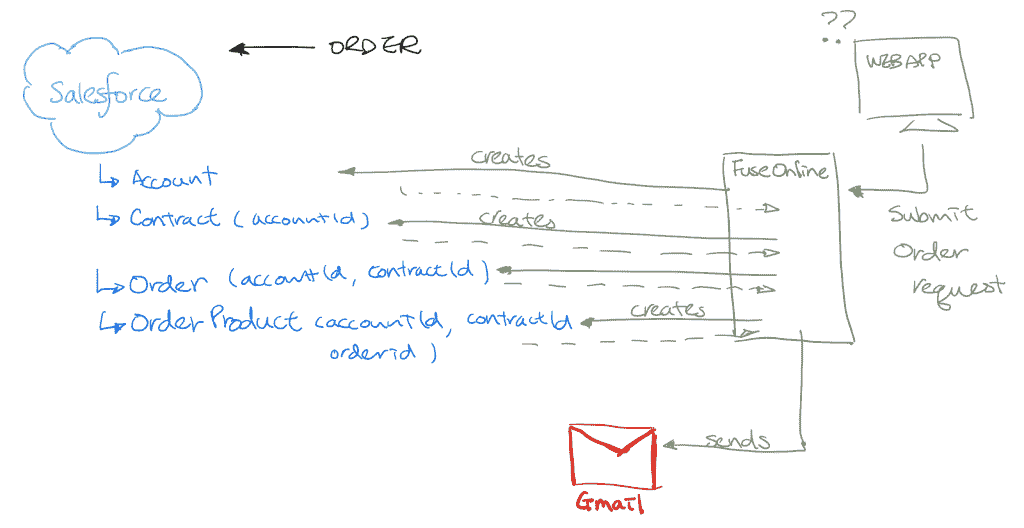 ??
ORDER
WEBAPP
Salesforce
creates
FuseOnline
↳ Account
↳ Contract (accountId)
creates
Submit
Order
request
↳ Order (accountId, contractId)
↳ OrderProduct (accountId, contractId
orderid)
creates
sends
Gmail